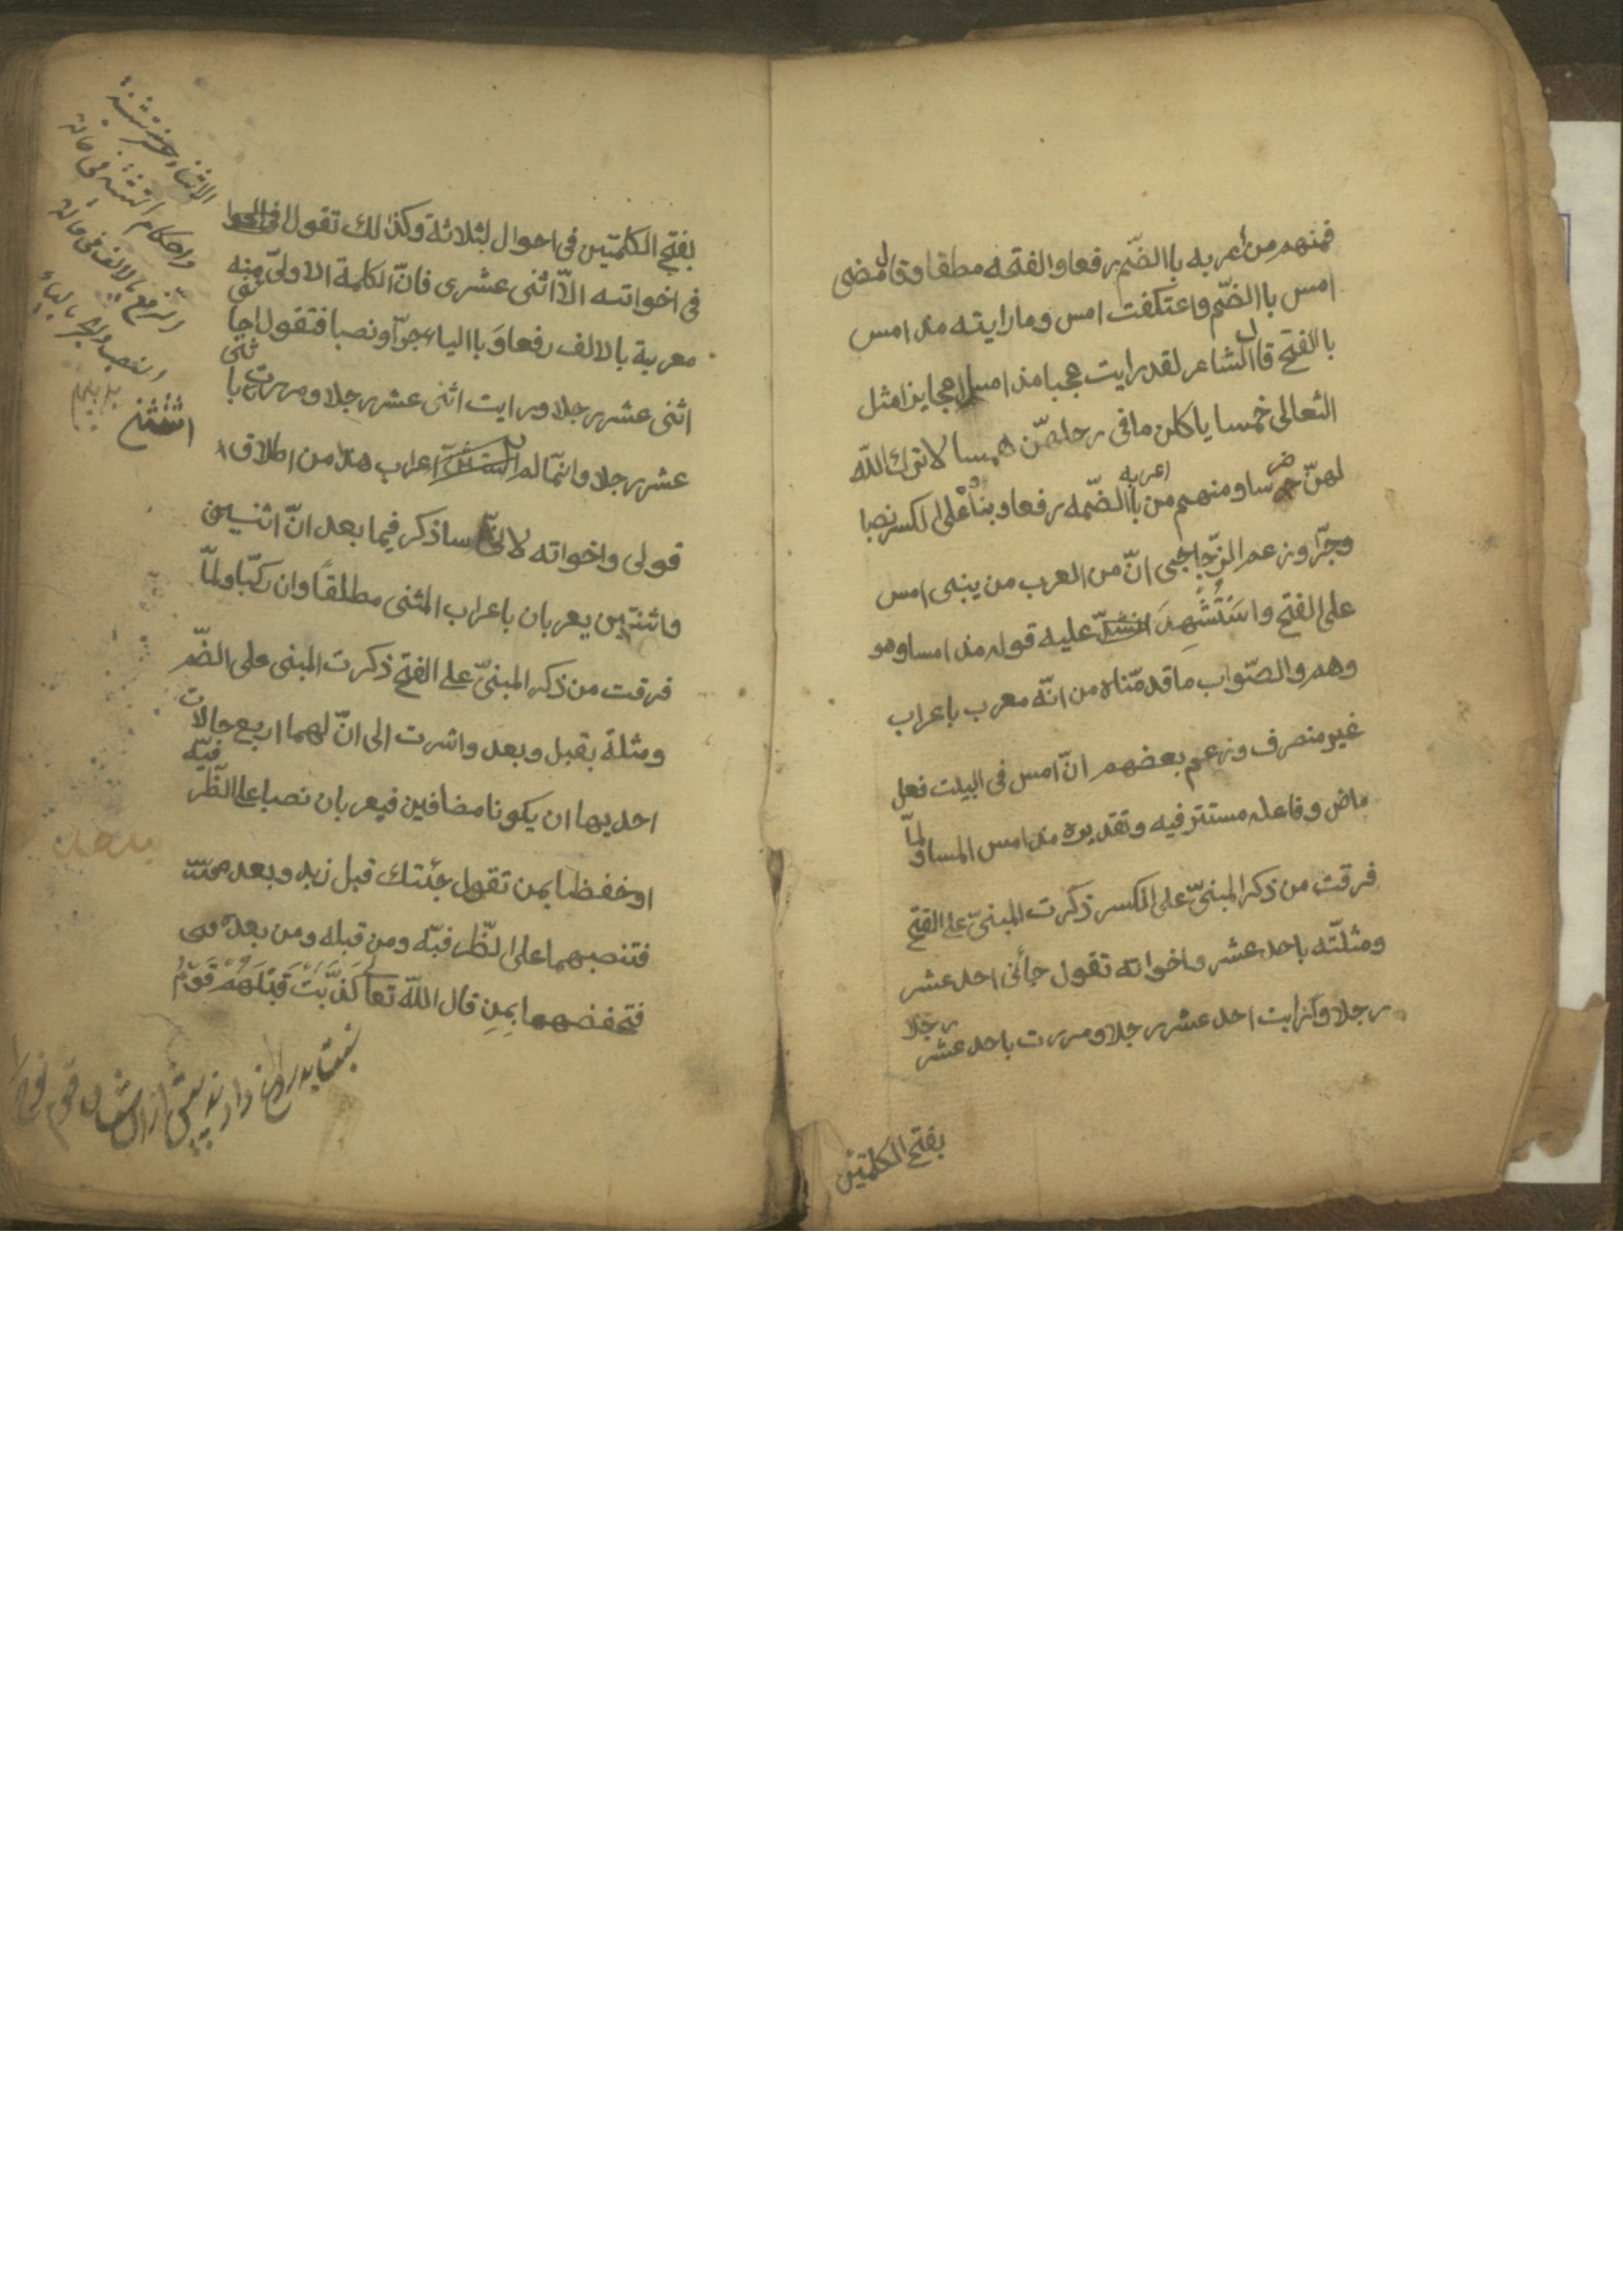 فمنهم من أعربه باالضّم رفعا والفتحه مطقا وقال مضى
امس باالضّم واعتكفت امس وما رايته مذ امس
بالفتح قال الشاعر لقد رايت عجبا مذ امسا عجايزا مثل
الثعالى خمسا ياكلن ما فى رحلهنّ همسا لا ترك اللّه
لهنّ ضرسا ومنهم من اعربه باالضّمه رفعا وبناء على الكسر نصبا
وجرّا وزعم الزّجاجى انّ من العرب من يبنى امس
على الفتح واستشهد عليه قوله مذ امسا وهو
وهم والصّواب ما قدمّناه من انّه معرب باعراب
غير منصرف وزعم بعضهم انّ امس فى البيت فعل
ماض وفاعله مستتر فيه وتقديره مذ امس المسا ولمّا
فرقت من ذكر المبنىّ على الكسر ذكرت المبنىّ على الفتح
ومثلّته باحد عشر واخواته تقول جأنى احد عشر
رجلا ورايت احد عشر رجلا ومررت باحد عشر رجلا
بفتح الكلمتين
بفتح الكلمتين فى احوال لثلاثة وكذالك تقول
فى اخواته الاّ اثنى عشرى فانّ الكلمة الاولىّ منه
معربة بالالف رفعا وباالياء جرّا ونصبا فتقول جا
اثنى عشر رجلا ورايت اثنى عشر رجلا ومررت با ثنى
عشر رجلا وانمّا لم اعراب هذا من اطلاق
قولى واخواته لانىّ ساذكر فيما بعد انّ اثنين
واثنتين يعربان باعراب المثنى مطلقاً وان ركبّا ولمّا
فرقت من ذكر المبنىّ على الفتح ذكرت المبنى على الضّم
ومثلة بقبل وبعد واشرت الى انّ لهما اربع حالات
احديها ان يكونا مضافين فيعربان نصبا على الظّرفيّه
او خفظا بمن تقول جئتك قبل زيد وبعد
فتنصبهما على الظّرفيّه ومن قبله ومن بعده
فتخفضهما بمن قال اللّه تعا كَذَّبَتْ قَبْلَهُمْ قَوْمُ
واحكام التثنية فى حالة
الرفع بالالف فى حالة
النصب والجر بالياء